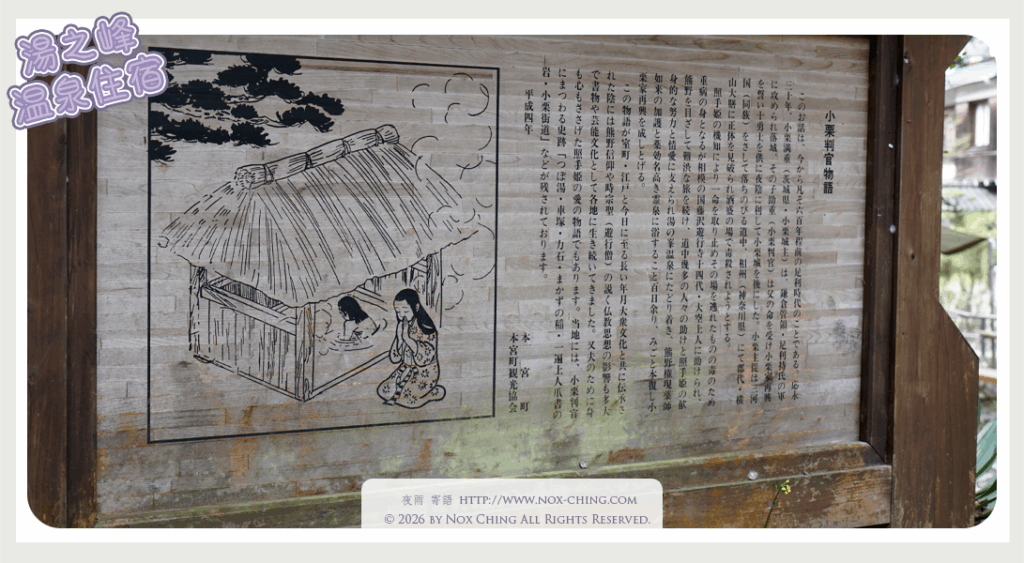 湯之峰
温泉住宿
小栗判官物語
このお話は、今から凡そ六百年程前の足利時代のことである。応永
三十年、小栗満重（茨城県・小栗城主）は、鎌倉管領・足利持氏の軍
に攻められ落城、その子助重（小栗判官）は父の命を受け小栗家再興
を救い十勇士を供に夜陰に利して小栗城を後にした。小栗主従は三河
国（同族）をさして落ちのびる道中、相州（神奈川県）にて郡代・横
山大膳に正体を見破られ酒盛の場で毒殺されようとする。
照手姫の機知により一命を取り止めその場を逃れたものの毒のため
重病の身となるが相模の国藤沢遊行寺十四代・大空上人に助けられ、
熊野を目ざして難渋な旅を続け、道中幾多の人々の助けと照手姫の献
身的な努力と情愛に支えられ湯の峯温泉にたどり着き、熊野権現薬師
如来の加護と薬効名高き霊泉に浴すること百日余り、みごと本復し小
栗家再興を成しとげる。
この物語が室町・江戸と今日に至る長い年月大衆文化と共に伝承さ
れた陰には熊野信仰や時宗聖（遊行僧）の説く仏教思想の影響も多大
で書物や芸能文化として各地に生き続いてきました。又夫のために身
も心もささげた照手姫の愛の物語でもあります。当地には、小栗判官
にまつわる史跡「つぼ湯・車塚・力石・まかずの稲・一遍上人爪書の
岩・小栗街道」などが残されております。
平成四年
本宮町
本宮町観光協会
夜雨 寄語 HTTP://WWW.NOX-CHING.COM
© 2026 BY NOX CHING ALL RIGHTS RESERVED.